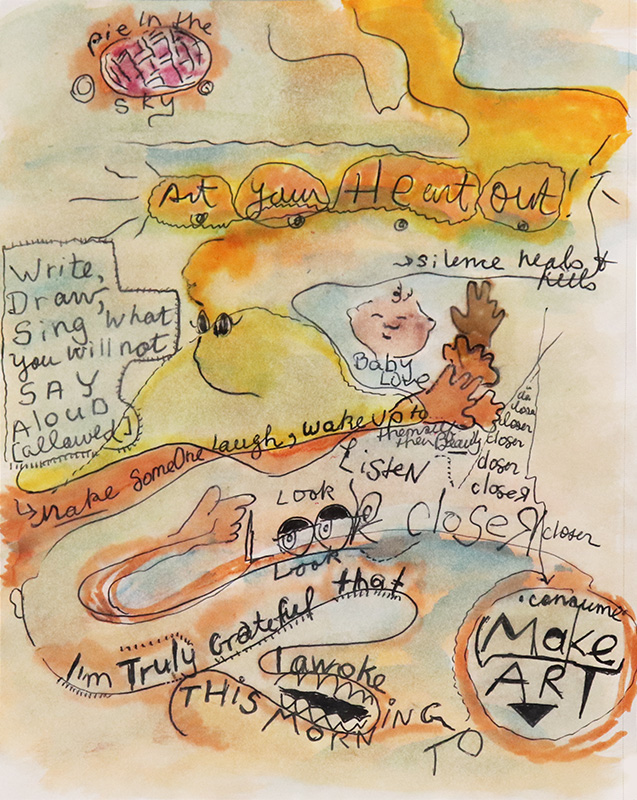 pie in the
sky
Art Your Heart out!
silence heals &
Write,
Draw,
Sing what
you will not
SAY
Aloud
[allowed]
Baby
Love
Make someone laugh, wake up to
Beauty
closer
closer
closer
closer
closer
LiSTEN
LOOK
LOOK closeR closer
LOOK
I'm Truly Grateful that
I awoke
THIS MORNiNG
TO
consume
Make
ART